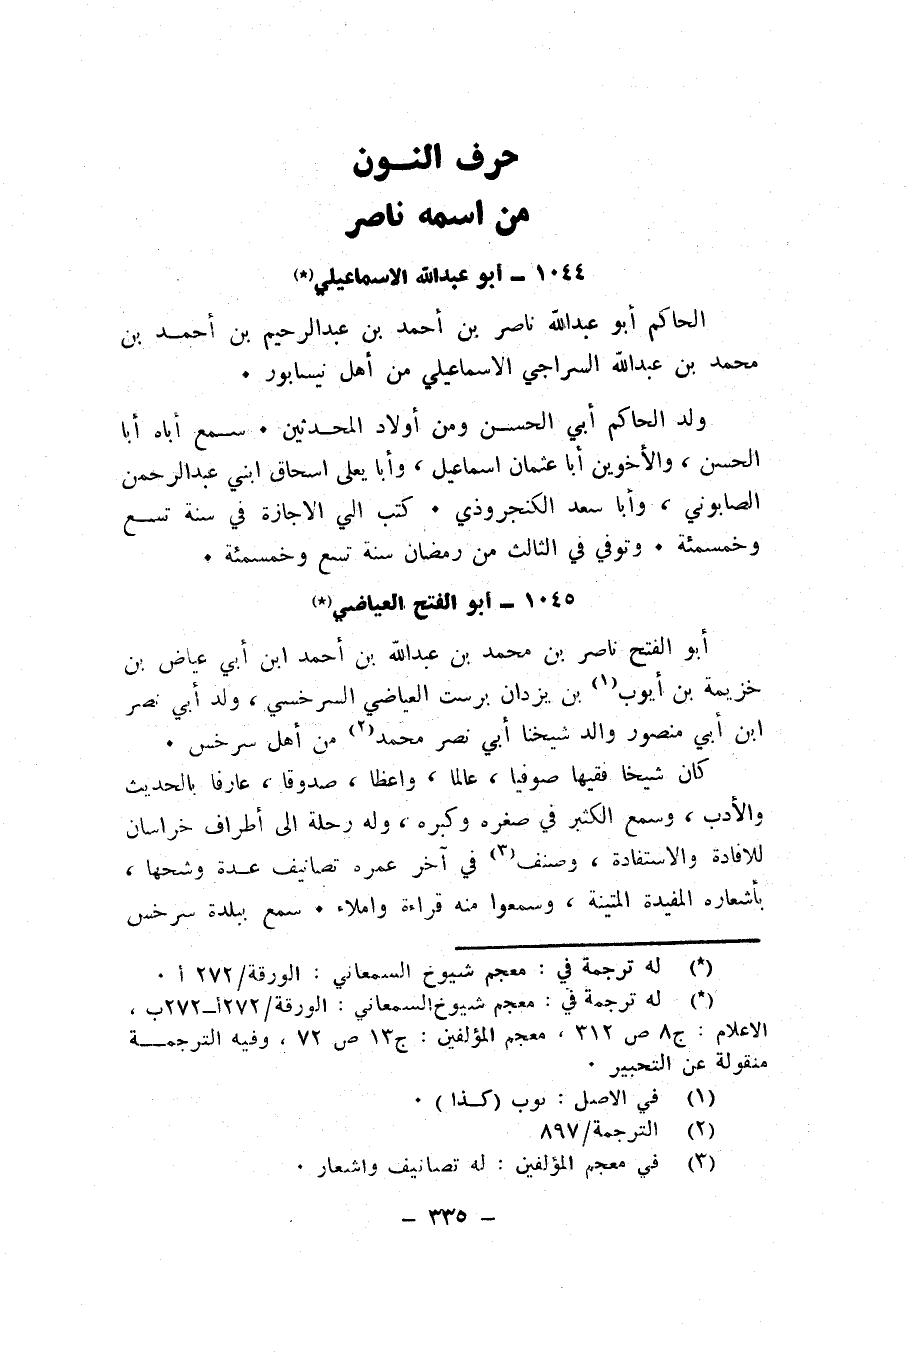 حرف النــون
من اسمه ناصر
١٠٤٤ ـ أبو عبدالله الاسماعيلي(*)
الحاكم أبو عبدالله ناصر بن أحمد بن عبدالرحيم بن أحمـد بن
محمد بن عبدالله السراجي الاسماعيلي من أهل نيسابور ٠
ولد الحاكم أبي الحســن ومن أولاد المحـدثين ٠ ســمع أباه أبا
الحسن ، والأخوين أبا عثمان اسماعيل ، وأبا يعلى اسحاق ابني عبدالرحمن
الصابوني ، وأبا سعد الكنجروذي ٠ كتب الي الاجازة في سنة تســع
وخمسمئة ٠ وتوفي في الثالث من رمضان سنة تسع وخمسمئة ٠
١٠٤٥ ـ أبو الفتح العياضي(*)
أبو الفتح ناصر بن محمد بن عبدالله بن أحمد ابن أبي عياض بن
خزيمة بن أيوب(١) بن يزدان برست العياضي السرخسي ، ولد أبي نصر
ابن أبي منصور والد شيخنا أبي نصر محمد(٢) من أهل سرخس ٠
كان شيخا فقيها صوفيا ، عالما ، واعظا ، صدوقا ، عارفا بالحديث
والأدب ، وسمع الكثير في صغره وكبره ، وله رحلة الى أطراف خراسان
للافادة والاستفادة ، وصنف(٣) في آخر عمره تصانيف عـدة وشحها ،
بأشعاره المفيدة المتينة ، وسمعوا منه قراءة واملاء ٠ سمع ببلدة سرخس
(*) له ترجمة في : معجم شيوخ السمعاني : الورقة/٢٧٢ أ ٠
(*) له ترجمة في : معجم شيوخ السمعاني : الورقة/٢٧٢أـ٢٧٢ب ،
الاعلام : ج٨ ص ٣١٢ ، معجم المؤلفين : ج١٣ ص ٧٢ ، وفيه الترجمـــة
منقولة عن التحبير ٠
(١) في الاصل : بوب (كـذا ) ٠
(٢) الترجمة/٨٩٧
(٣) في معجم المؤلفين : له تصانيف واشعار ٠
ـ ٣٣٥ ـ